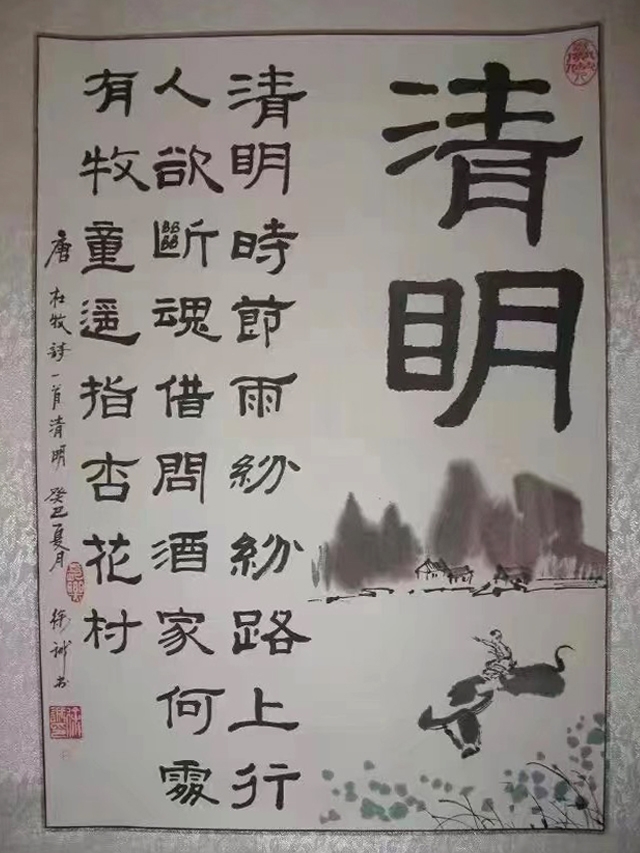 清明
清明時節雨紛紛路上行
人欲斷魂借問酒家何處
有牧童遥指杏花村
唐 杜牧詩一首清明 癸巳夏月 徐誠书